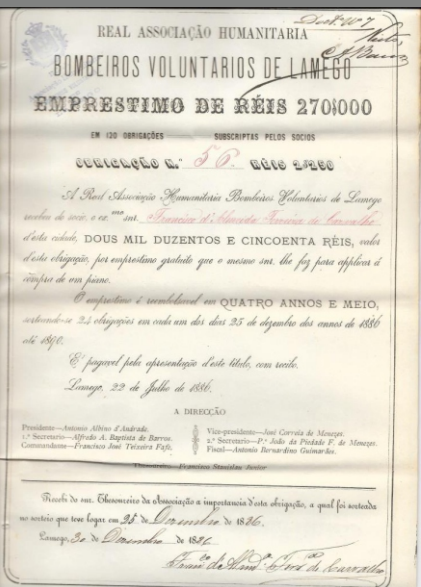 REAL ASSOCIAÇÃO HUMANITARIA
BOMBEIROS VOLUNTARIOS DE LAMEGO
EMPRESTIMO DE RÉIS 270$000
EM 120 OBRIGAÇÕES SUBSCRIPTAS PELOS SOCIOS
OBRIGAÇÃO N.º 56 RÉIS 2$250
A Real Associação Humanitaria Bombeiros Voluntarios de Lamego
recebeu do socio, o ex.mo snr. Francisco d'Almeida Ferreira de Carvalho
d'esta cidade, DOUS MIL DUZENTOS E CINCOENTA RÉIS, valor
d'esta obrigação, por emprestimo gratuito que o mesmo snr. lhe faz para applicar á
compra de um piano.
O emprestimo é reembolsavel em QUATRO ANNOS E MEIO,
sorteando-se 24 obrigações em cada um dos dias 25 de dezembro dos annos de 1886
até 1890.
E' pagavel pela apresentação d'este titulo, com recibo.
Lamego, 22 de Julho de 1886.
A DIRECÇÃO
Presidente—Antonio Albino d'Andrade.
1.º Secretario—Alfredo A. Baptista de Barros.
Commandante—Francisco José Teixeira Fafe.
Vice-presidente—José Correia de Menezes.
2.º Secretario—P.e João da Piedade F. de Menezes.
Fiscal—Antonio Bernardino Guimarães.
Thesoureiro—Francisco Stanislau Junior
Recebi do snr. Thesoureiro da Associação a importancia d'esta obrigação, a qual foi sorteada
no sorteio que teve logar em 25 de Dezembro de 1886.
Lamego, 30 de Dezembro de 1886.
Fran.co de Alm.da Ferr.a de Carvalho